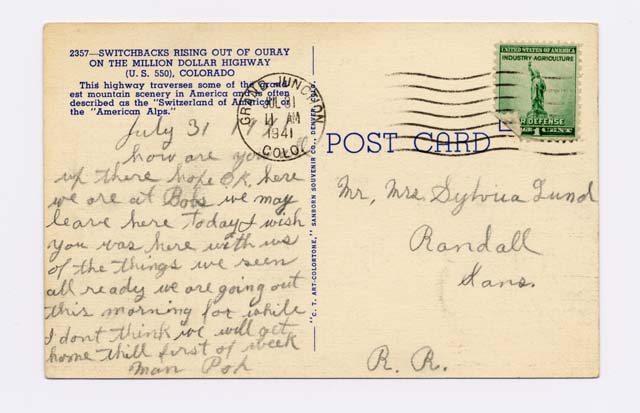 2357—SWITCHBACKS RISING OUT OF OURAY
ON THE MILLION DOLLAR HIGHWAY
(U. S. 550), COLORADO
This highway traverses some of the grand-
est mountain scenery in America and is often
described as the "Switzerland of America" or
the "American Alps."
July 31
how are you all
up there hope O.K. here
we are at Bobs we may
leave here Today I wish
you was here with us
of the things we seen
all ready we are going out
this morning for while
I dont think we will get
home thill first of week
GRAND JUNCTION
JUL 31
11 AM
1941
COLO.
UNITED STATES OF AMERICA
INDUSTRY-AGRICULTURE
FOR DEFENSE
1 CENT
POST CARD
"C. T. ART-COLORTONE," SANBORN SOUVENIR CO., DENVER, COLO.
Mr, Mrs. Sylvia Lund
Randall
Kans.
R. R.